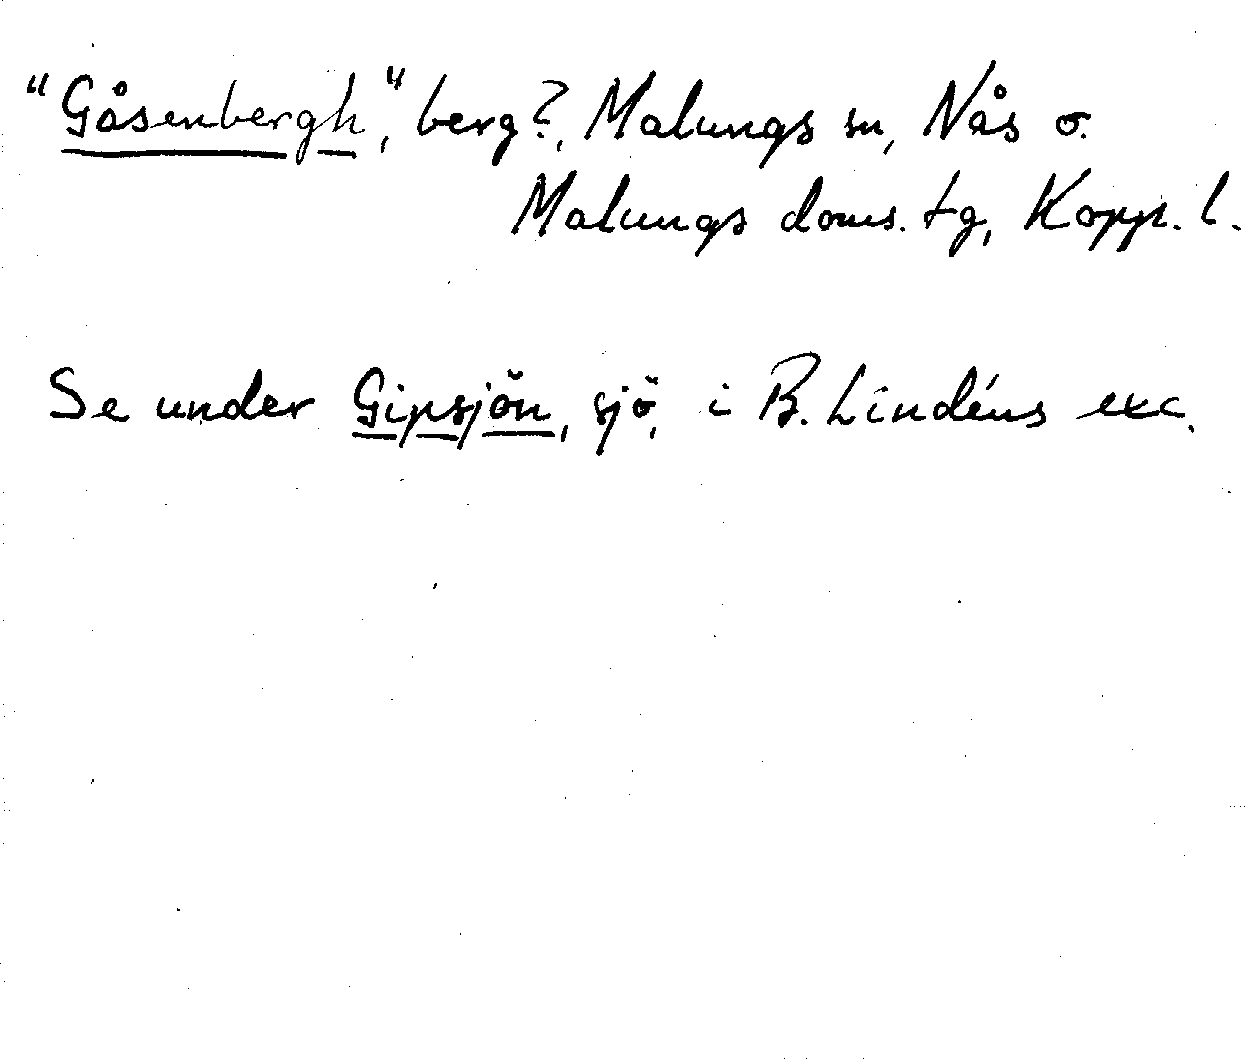 "Gåsenbergh", berg?, Malungs sn, Nås o.
Malungs doms. tg, Kopp. l.
Se under Gipsjön, sjö, i B. Lindéns exc.